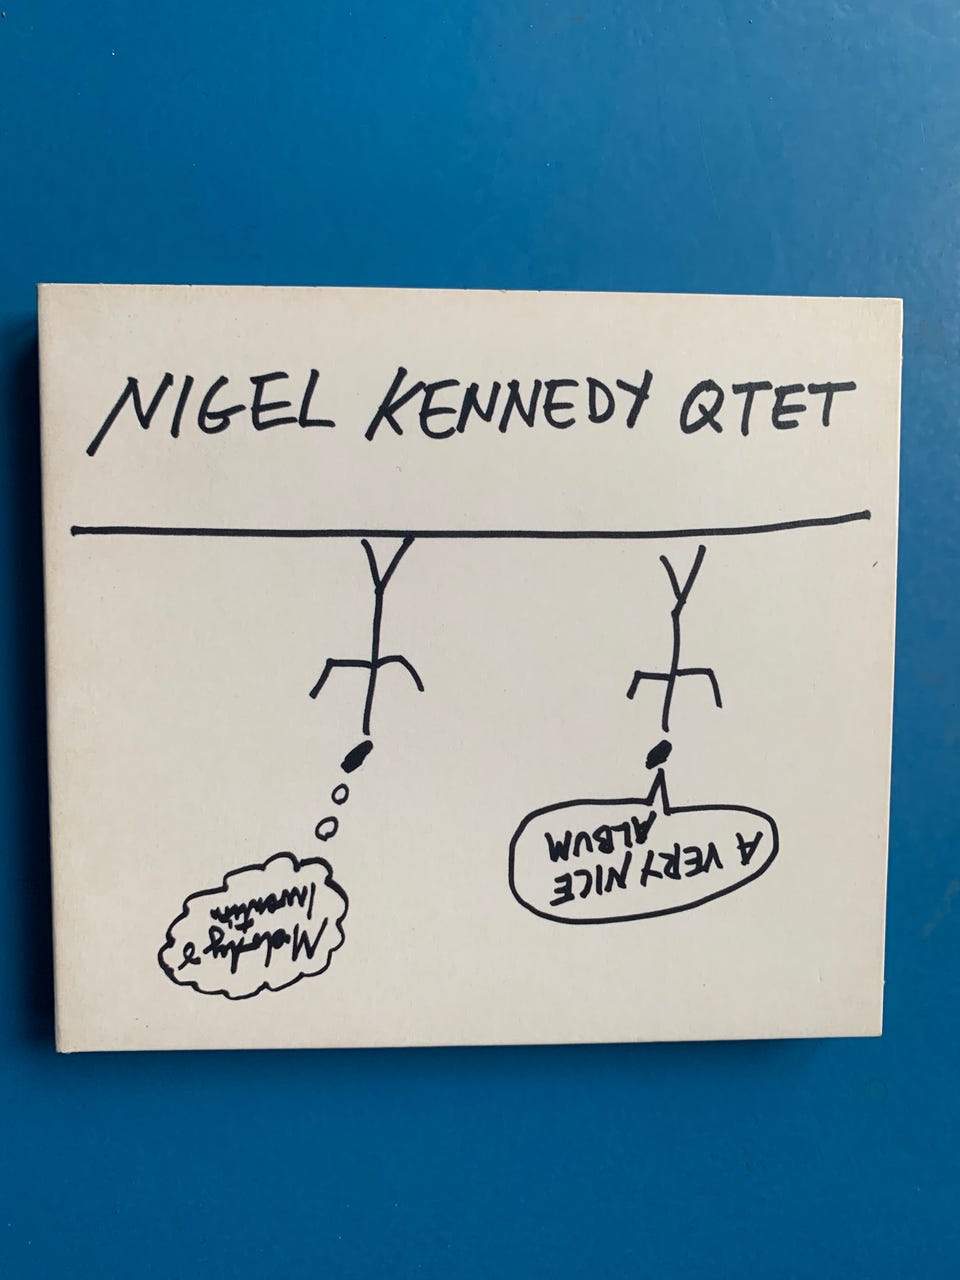 NIGEL KENNEDY QTET
A VERY NICE
ALBUM
Melody
+
Invention